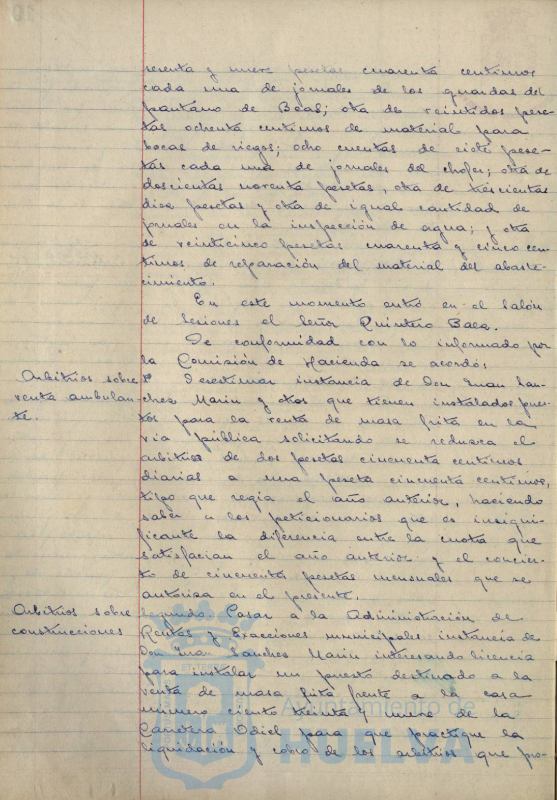 sesenta y nueve pesetas cuarenta centimos
cada una de jornales de los guardas del
pantano de Beas; otra de veintidos pese-
tas ochenta centimos de material para
bocas de riegos; ocho cuentas de siete pese-
tas cada una de jornales del chofer; otra de
doscientas noventa pesetas, otra de trescientas
diez pesetas y otra de igual cantidad de
jornales en la inspección de agua; y otra
de veinticinco pesetas cuarenta y cinco cen-
timos de reparación del material del abaste-
cimiento.
En este momento entró en el salón
de sesiones el Señor Quintero Baea.
De conformidad con lo informado por
la Comisión de Hacienda se acordó:
Arbitrios sobre
venta ambulan-
te.
1º Desestimar instancia de Don Juan San-
chez Marin y otos que tienen instalados pues-
tos para la venta de masa frita en la
via pública solicitando se reduzca el
arbitrio de dos pesetas cincuenta centimos
diarias a una peseta cincuenta centimos,
tipo que regia el año anterior, haciendo
saber a los peticionarios que es insigni-
ficante la diferencia entre la cuota que
satisfacian el año anterior y el concier-
to de cincuenta pesetas mensuales que se
autoriza en el presente.
Arbitrios sobre
construcciones
Segundo. Pasar a la Administración de
Rentas y Exacciones municipales instancia de
Don Juan Sanches Marin interesando licencia
para instalar un puesto destinado a la
venta de masa frita frente a la casa
número ciento treinta y nueve de la
Carretera Odiel para que practique la
liquidación y cobro de los arbitrios que pro-
Ayuntamiento de
HUELVA